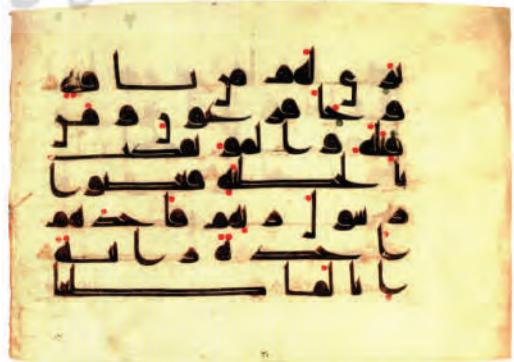 ترى لهم من باقية
وجا فرعون ومن
قبله والموتفكت
بالخاطئة فعصوا
رسول ربهم فاخذهم
اخذة رابية
انا لما طغا